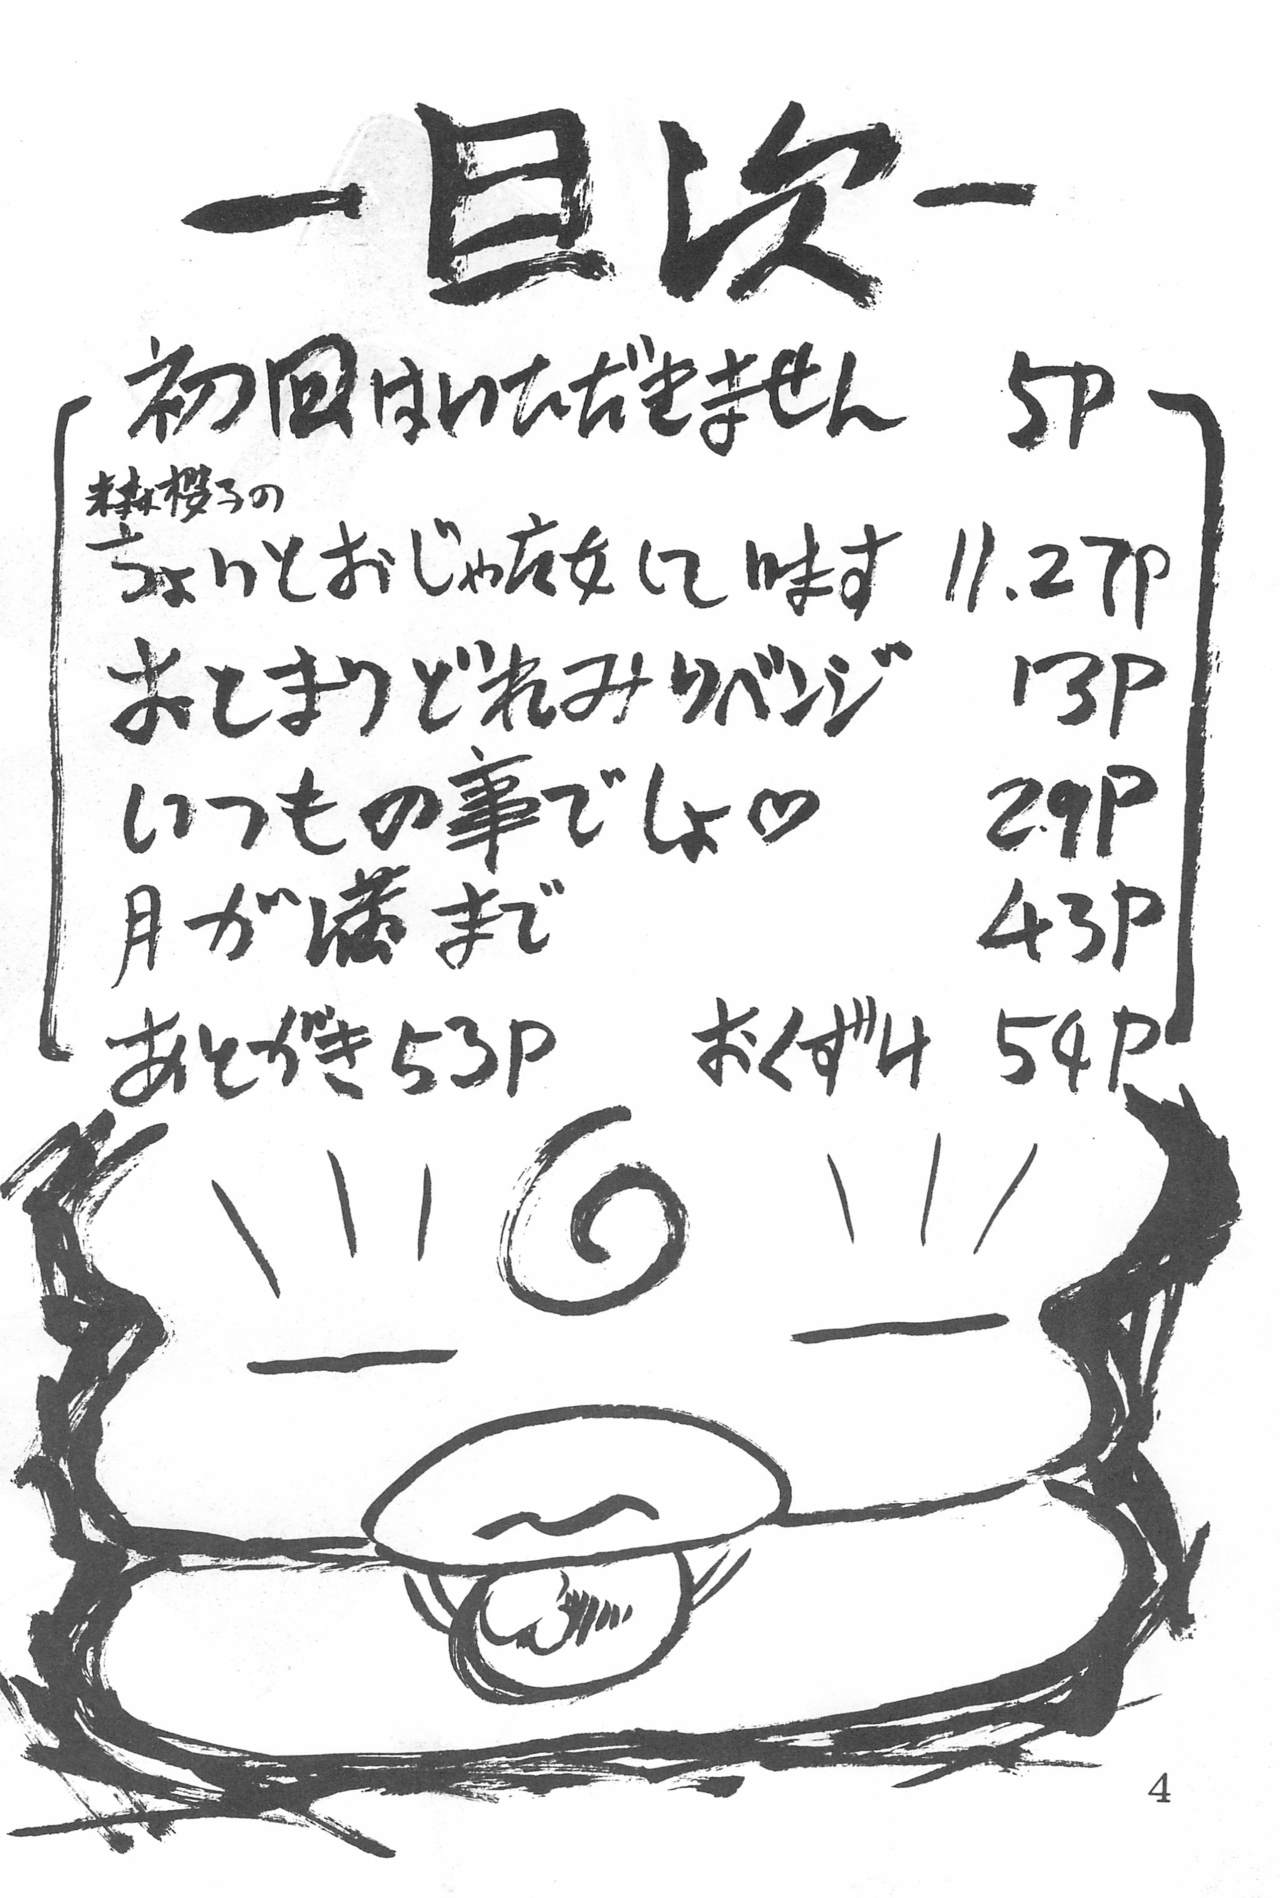 ー目次ー
初回はいただきません 5P
櫻子の
ちょいとおじゃ古女して味ます 11.27P
おとまりどれみリベンジ 13P
いつもの事でしょ♡ 29P
月が満まで 43P
あとがき 53P おくずけ 54P
4